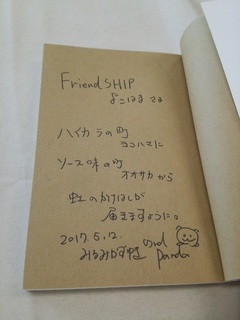 FriendSHIP
よこはま さま
ハイカラの町
ヨコハマに
ソース味の町
オオサカから
虹のかけはしが
届きますように。
2017.5.12.
and
Panda